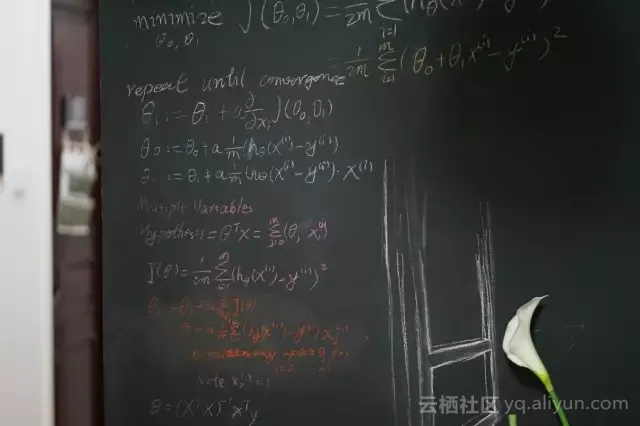 minimize J(θ₀,θ₁) = 1/2m Σ i=1 (hθ(x⁽ⁱ⁾) - y
θ₀, θ₁
= 1/2m Σ i=1 m (θ₀ + θ₁x⁽ⁱ⁾ - y⁽ⁱ⁾)²
repeat until convergence
θᵢ := θᵢ + a ∂/∂xᵢ J(θ₀,θ₁)
θ₀ := θ₀ + a 1/m (hθ(x⁽ⁱ⁾ - y⁽ⁱ⁾)
θ₁ := θ₁ + a 1/m (hθ(x⁽ⁱ⁾ - y⁽ⁱ⁾) · x⁽ⁱ⁾
Multiple Variables
Hypothesis = θᵀx = Σ j=0 (θⱼ xⱼ)
J(θ) = 1/2m Σ i=1 m (hθ(x⁽ⁱ⁾) - y⁽ⁱ⁾)²
θⱼ := θⱼ - a ∂/∂θⱼ J(θ)
update θⱼ for
Note x₀⁽ⁱ⁾ = 1
θ = (XᵀX)⁻¹Xᵀy
云栖社区 yq.aliyun.com